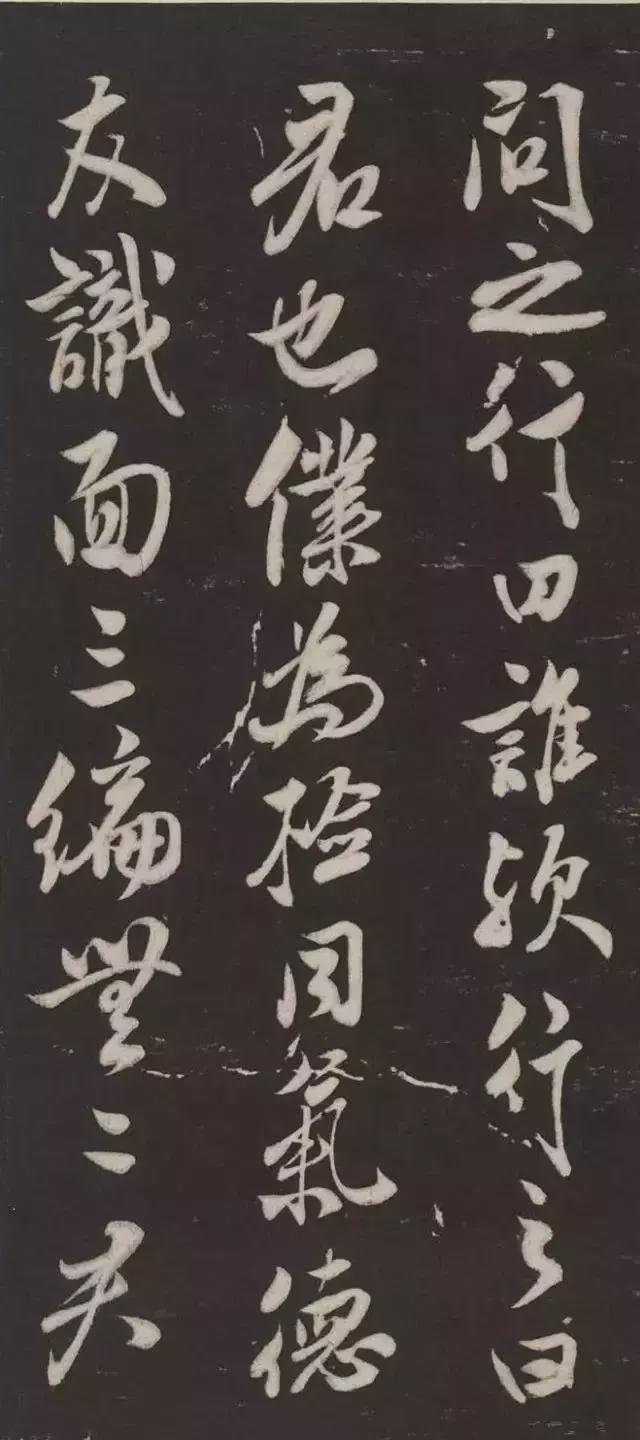 問之行曰誰歟行之曰
君也僕為撿同氣德
友識面三編無二夫